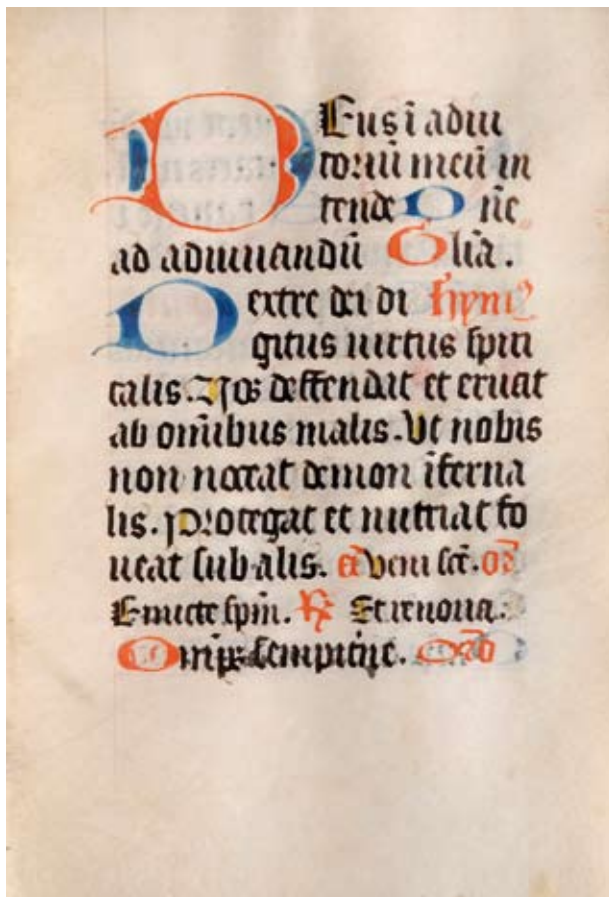 DEus ī adiu
toriū meū in
tende Dn̄e
ad adiuuandū Glīa.
Dextre dei di hymꝰ
gitus uirtus spiri
talis. Nos deffendat et eruat
ab om̄ibus malis. Vt nobis
non noceat demon īferna
lis. Protegat et nutriat fo
ueat sub alis. añ Veni sc̄e.
Emitte spm̄. ℟ Et renoua.
Om̄ps sempit̄ne. Oro